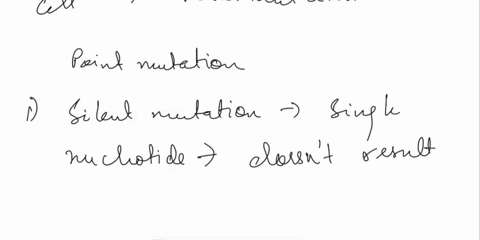 Cell →
Point mutation
1) Silent mutation → Single
nuclotide → doesn't result